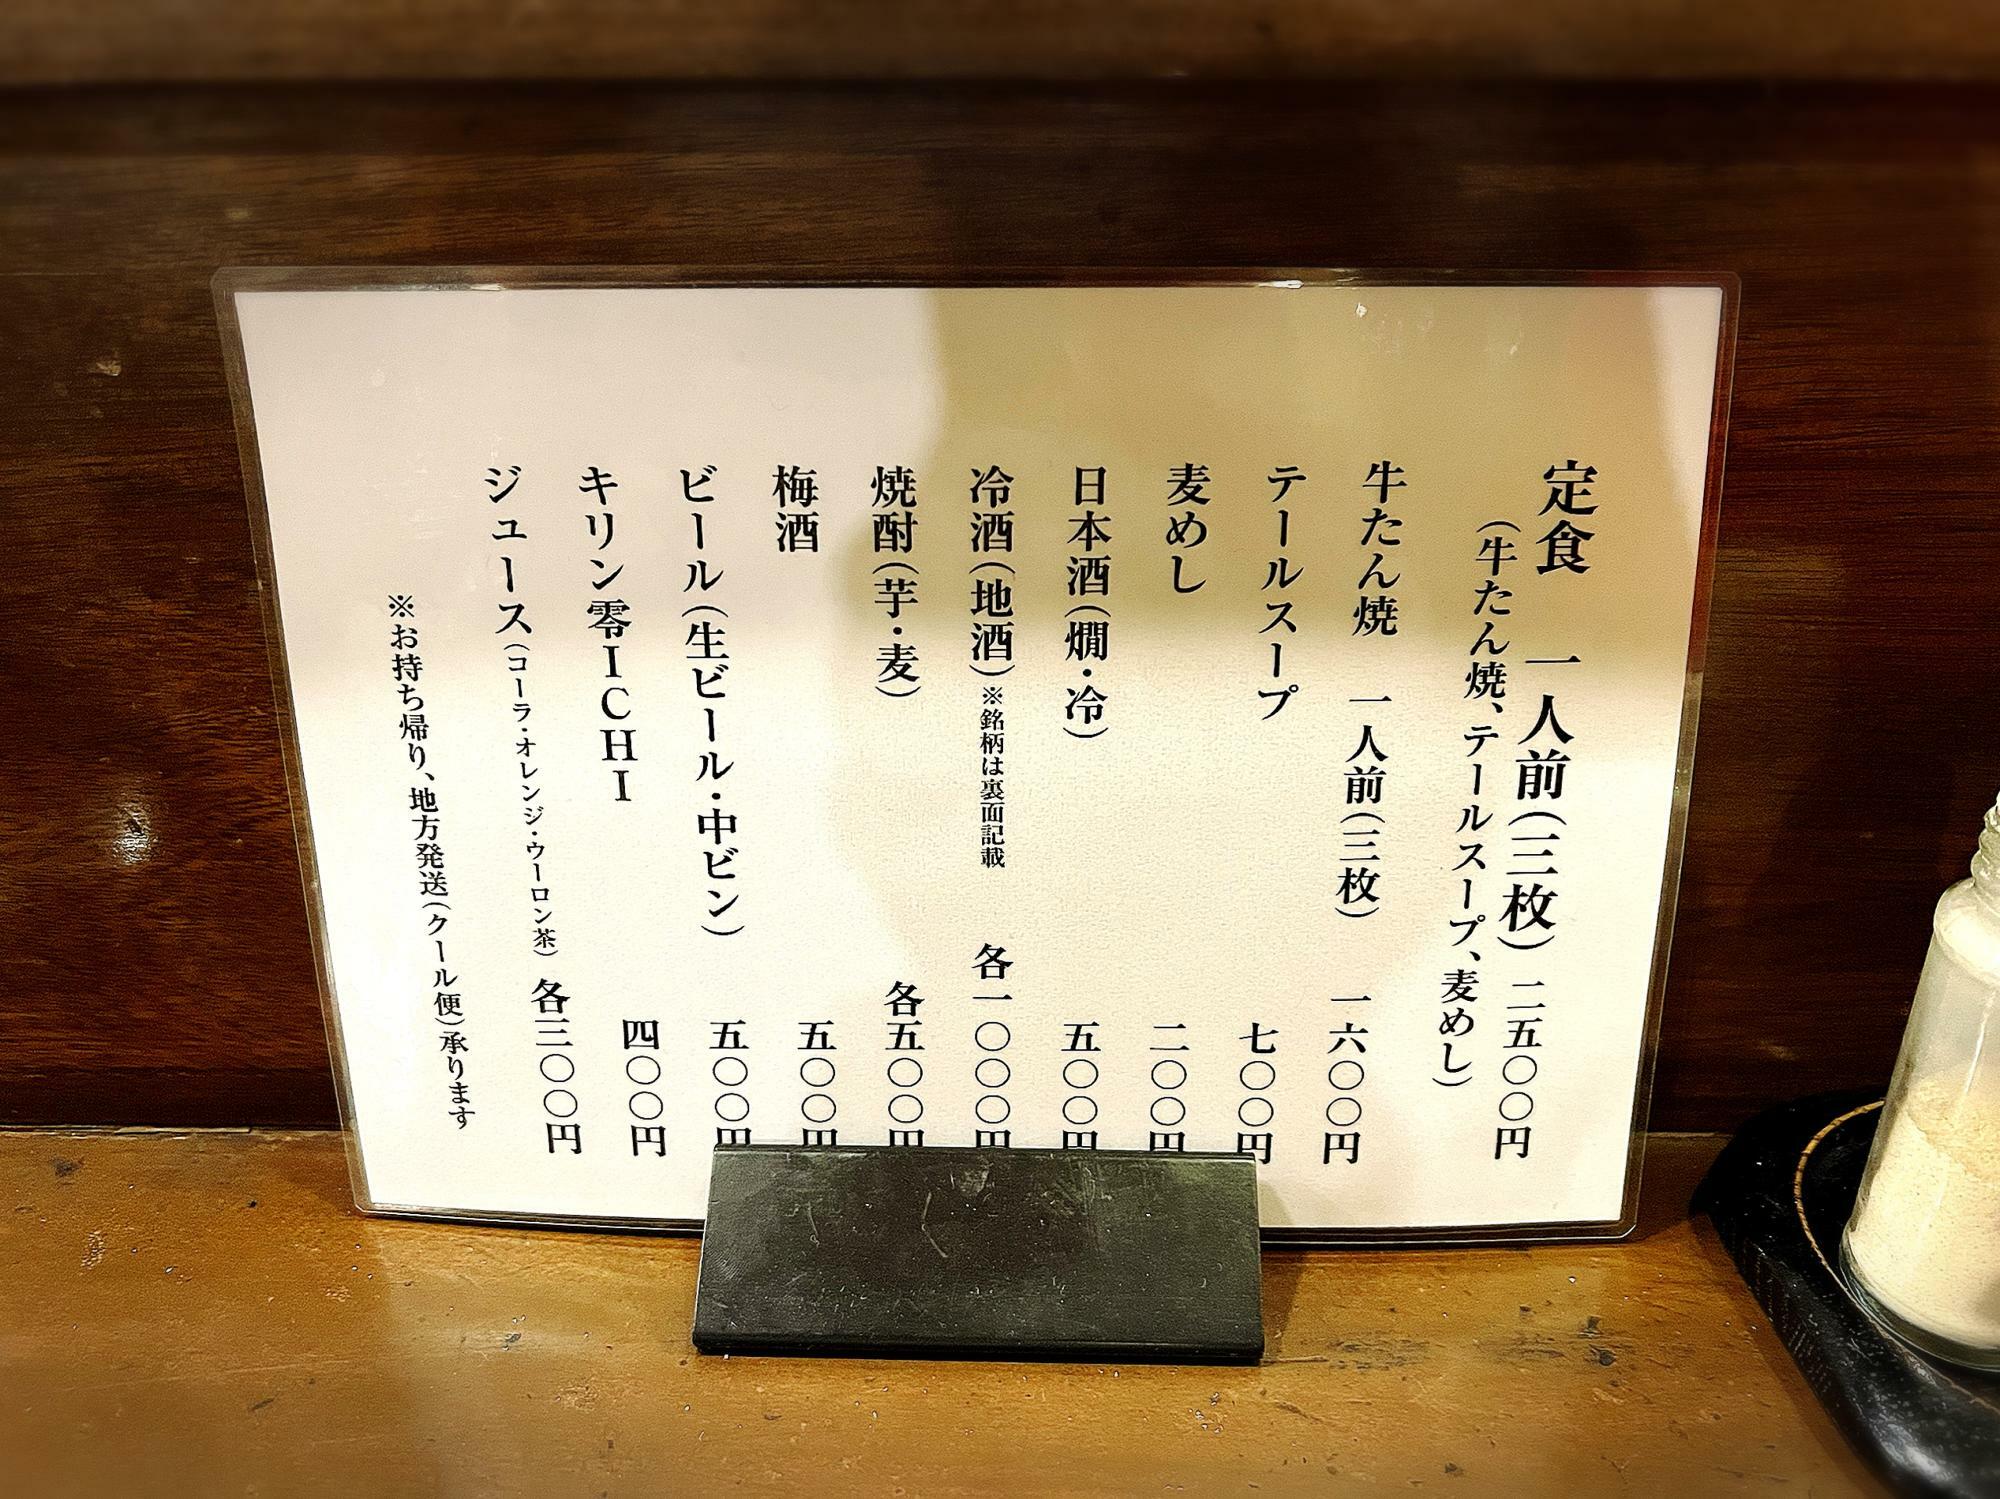 定食 一人前(三枚) 二五〇〇円
(牛たん焼、テールスープ、麦めし)
牛たん焼 一人前(三枚) 一六〇〇円
テールスープ 七〇〇円
麦めし 二〇〇円
日本酒(燗・冷) 五〇〇円
冷酒(地酒)※銘柄は裏面記載 各一〇〇〇円
焼酎(芋・麦) 各五〇〇円
梅酒 五〇〇円
ビール(生ビール・中ビン) 五〇〇円
キリン零ICHI 四〇〇円
ジュース(コーラ・オレンジ・ウーロン茶) 各三〇〇円
※お持ち帰り、地方発送(クール便)承ります